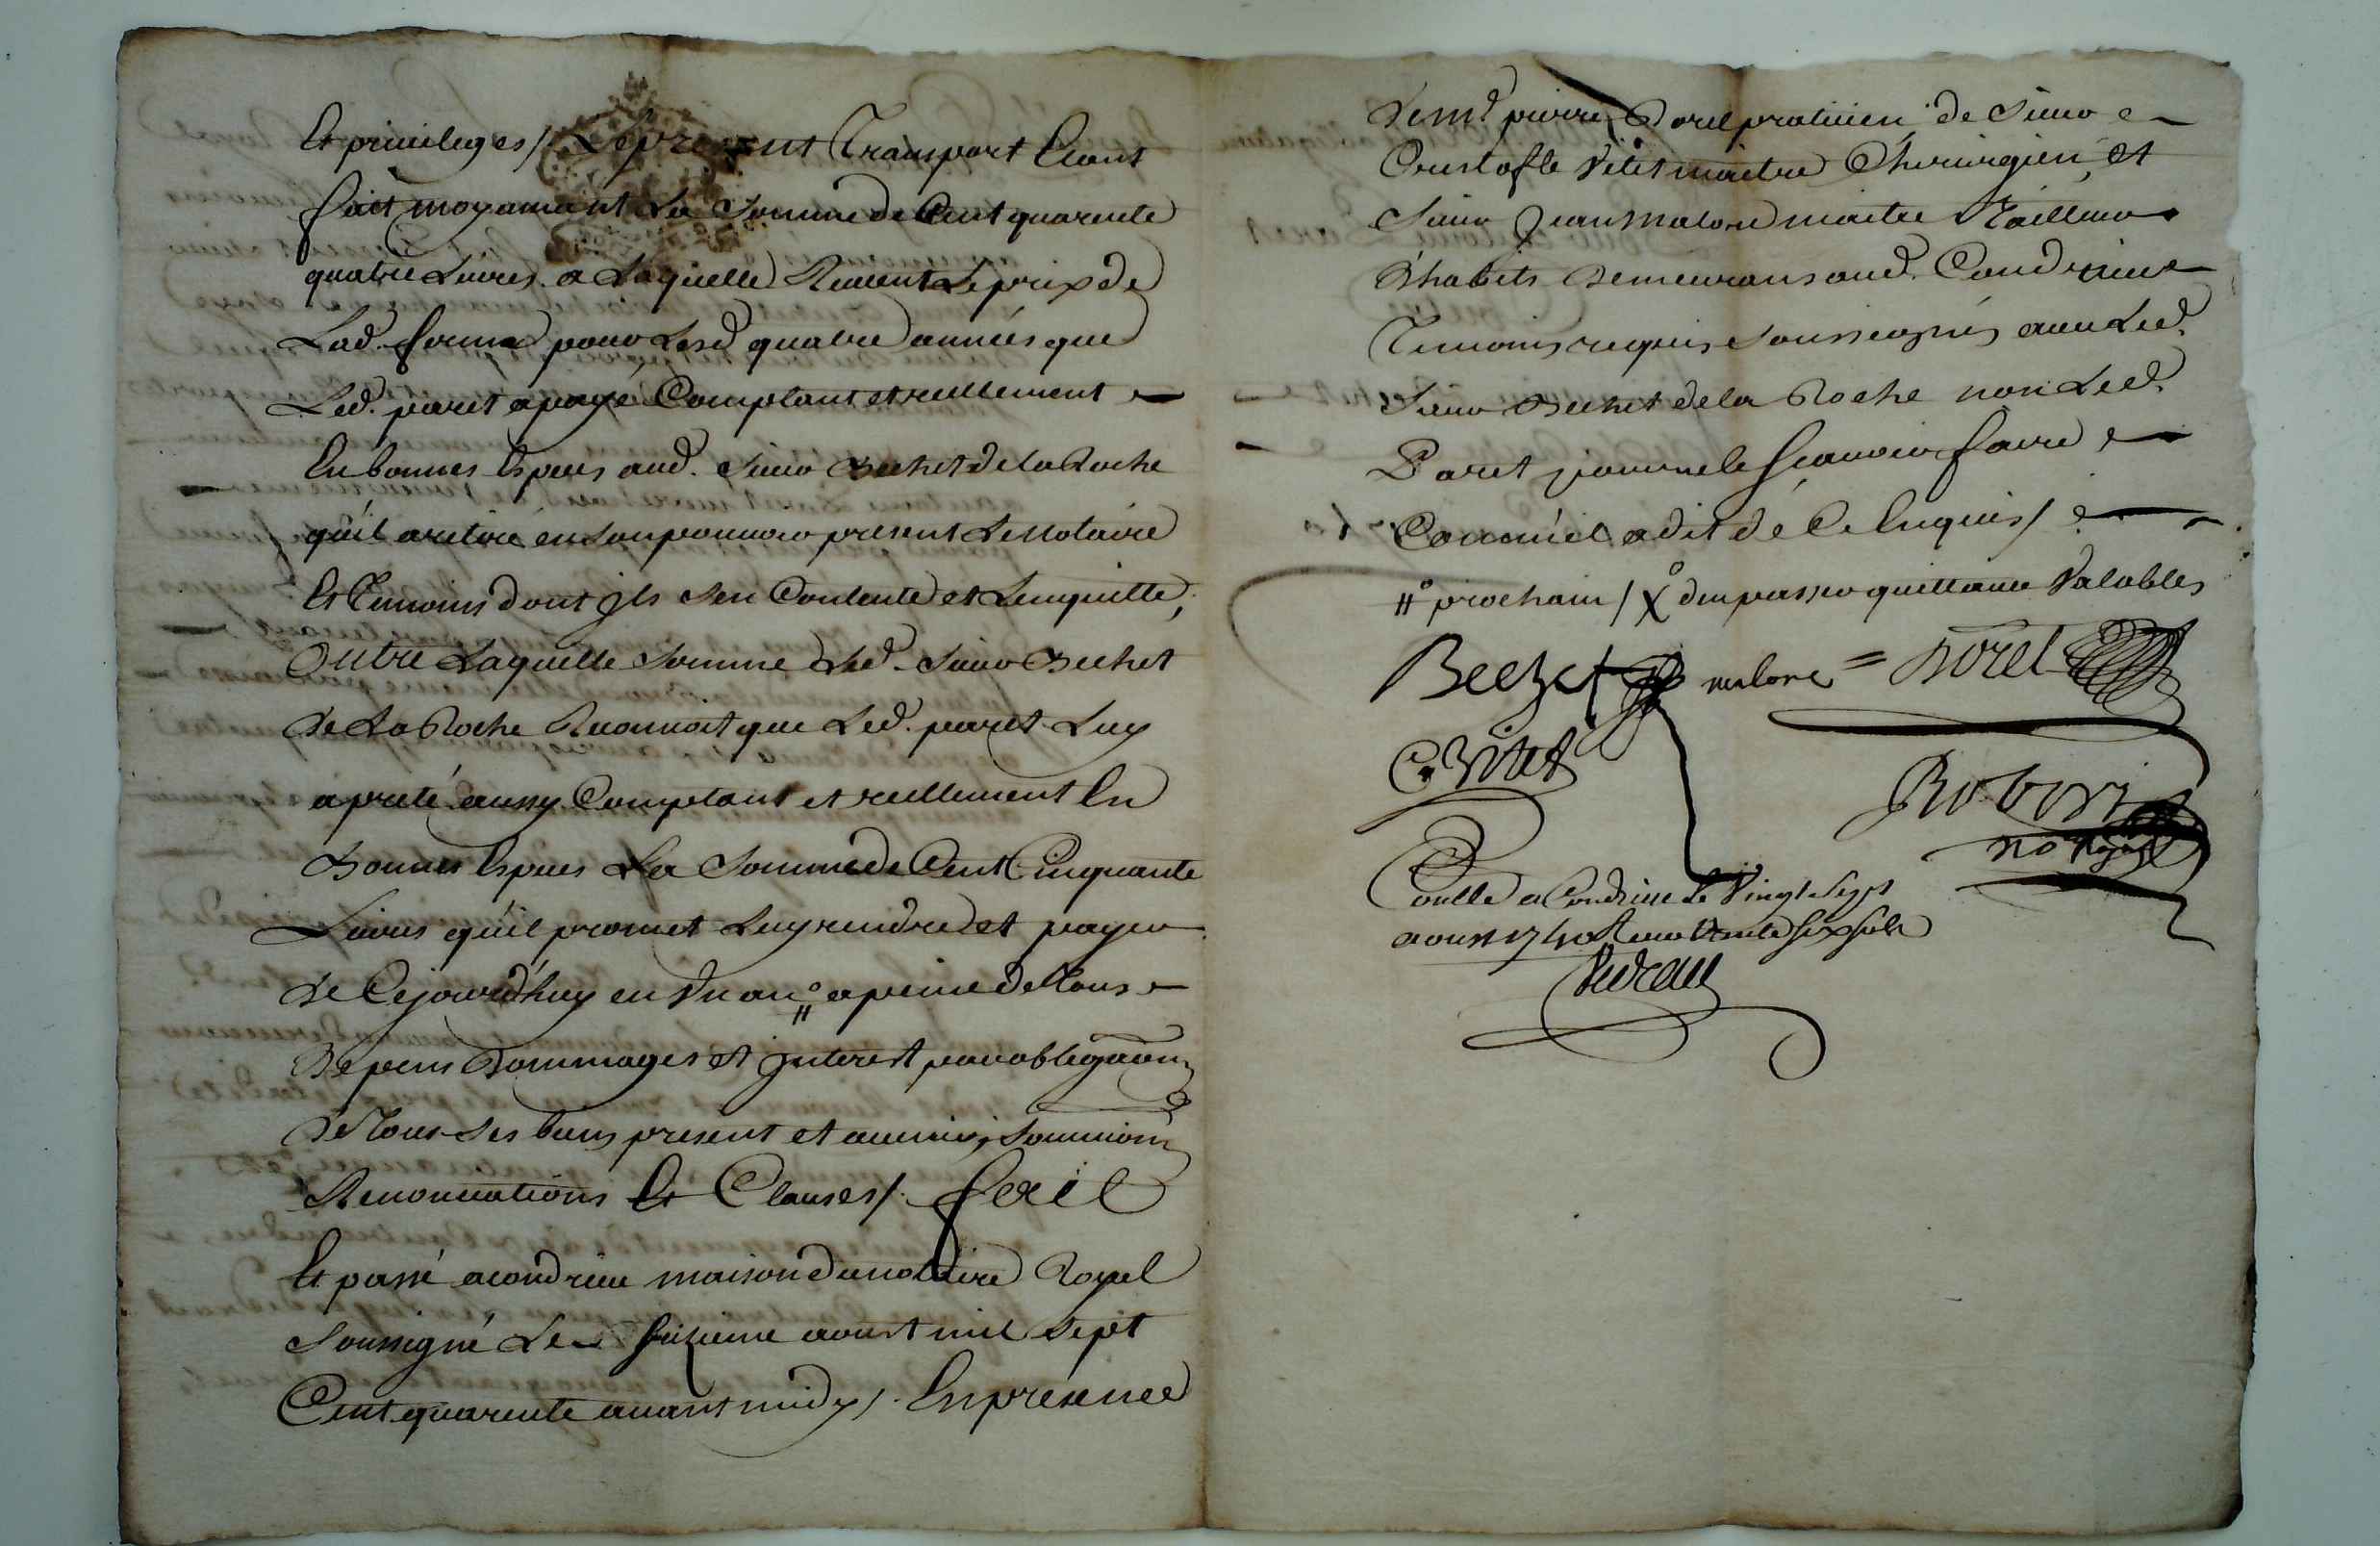 Et privileges / Le present Transport Etant
fait moyamant La Somme de Cent quarente
quatre Livres a Laquelle Revient Le prix de
Lad. ferme pour Lesd quatre années que
Led. paret a payé Comptant et reellement
En bonnes Especes aud. Sieur Bechet de la Roche
qu'il a retiré en son pouvoir present Le Notaire
Et Temoins dont Ils sen Contente et Lenquitte,
Outre Laquelle Somme Led. Sieur Bechet
de La Roche Reconnoit que Led. paret Luy
a preté aussy Comptant et reellement En
Bonnes Especes La Somme de Cent Cinquante
Livres qu'il promet Luy rendre et payer
de Cejourd'huy en Un an # a peine de Tous
Depens Dommages et Interest par obligaõn
de Tous Ses biens present et avenir, Soumiõn
Renonciations Et Clauses /. fait
Et passé a condrieu maison du notaire Royal
Soussigné Le seizieme aoust mil Sept
Cent quarente avant midy /. En presence
de mr pierre Borel praticien de Sieur
Cristofle Vitet maitre Chirurgien, et
Sieur Jean Malone maitre Tailleur
d'habits Demeurans aud. Condrieux
Temoins requis Soussignés avec Led.
Sieur Bechet de la Roche non Led.
Paret pour ne le sçavoir faire
Comme il a dit de Ce Enquis /
# prochain / X d'en passer quittance Valables
Bechet malone = Borel
C. Vitet
Robin
no Royal
Conllé a Condrieu Le Vingt Sept
aoust 1740 Reçu Trente six sols